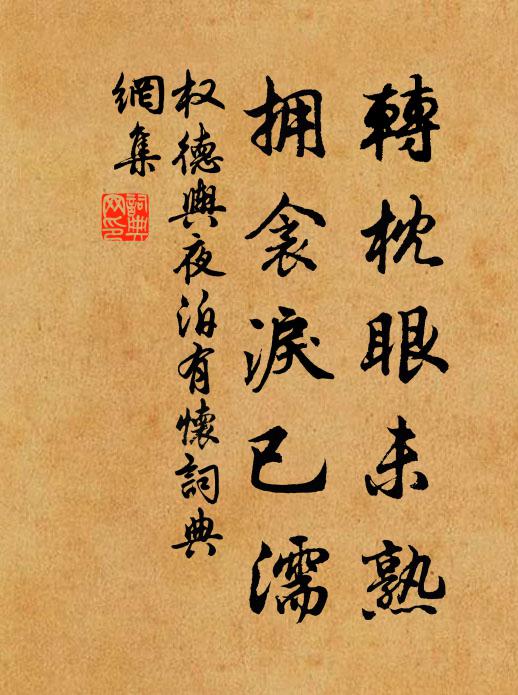 轉枕眼未熟
拥衾淚已濡
权德輿夜泊有懷詞典
網集
詞典网印